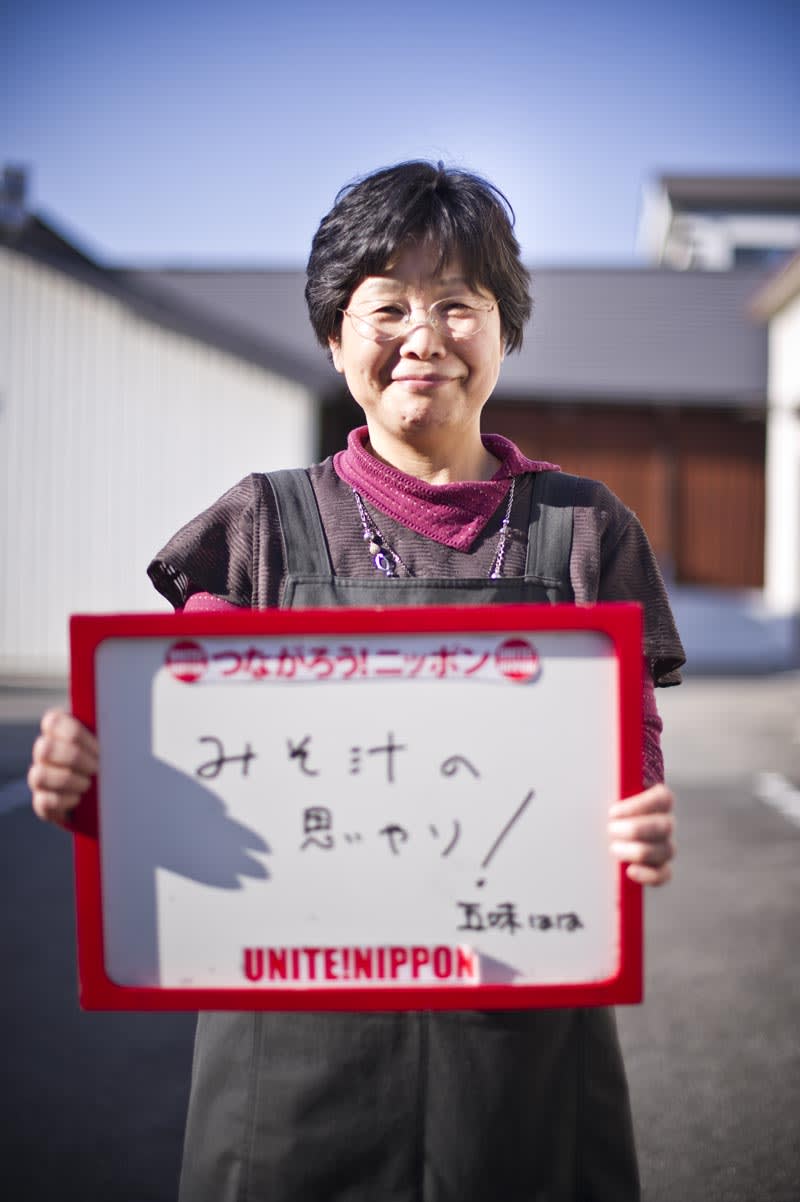 つながろう!ニッポン
みそ汁の
思いやり!
五味はは
UNITE!NIPPON